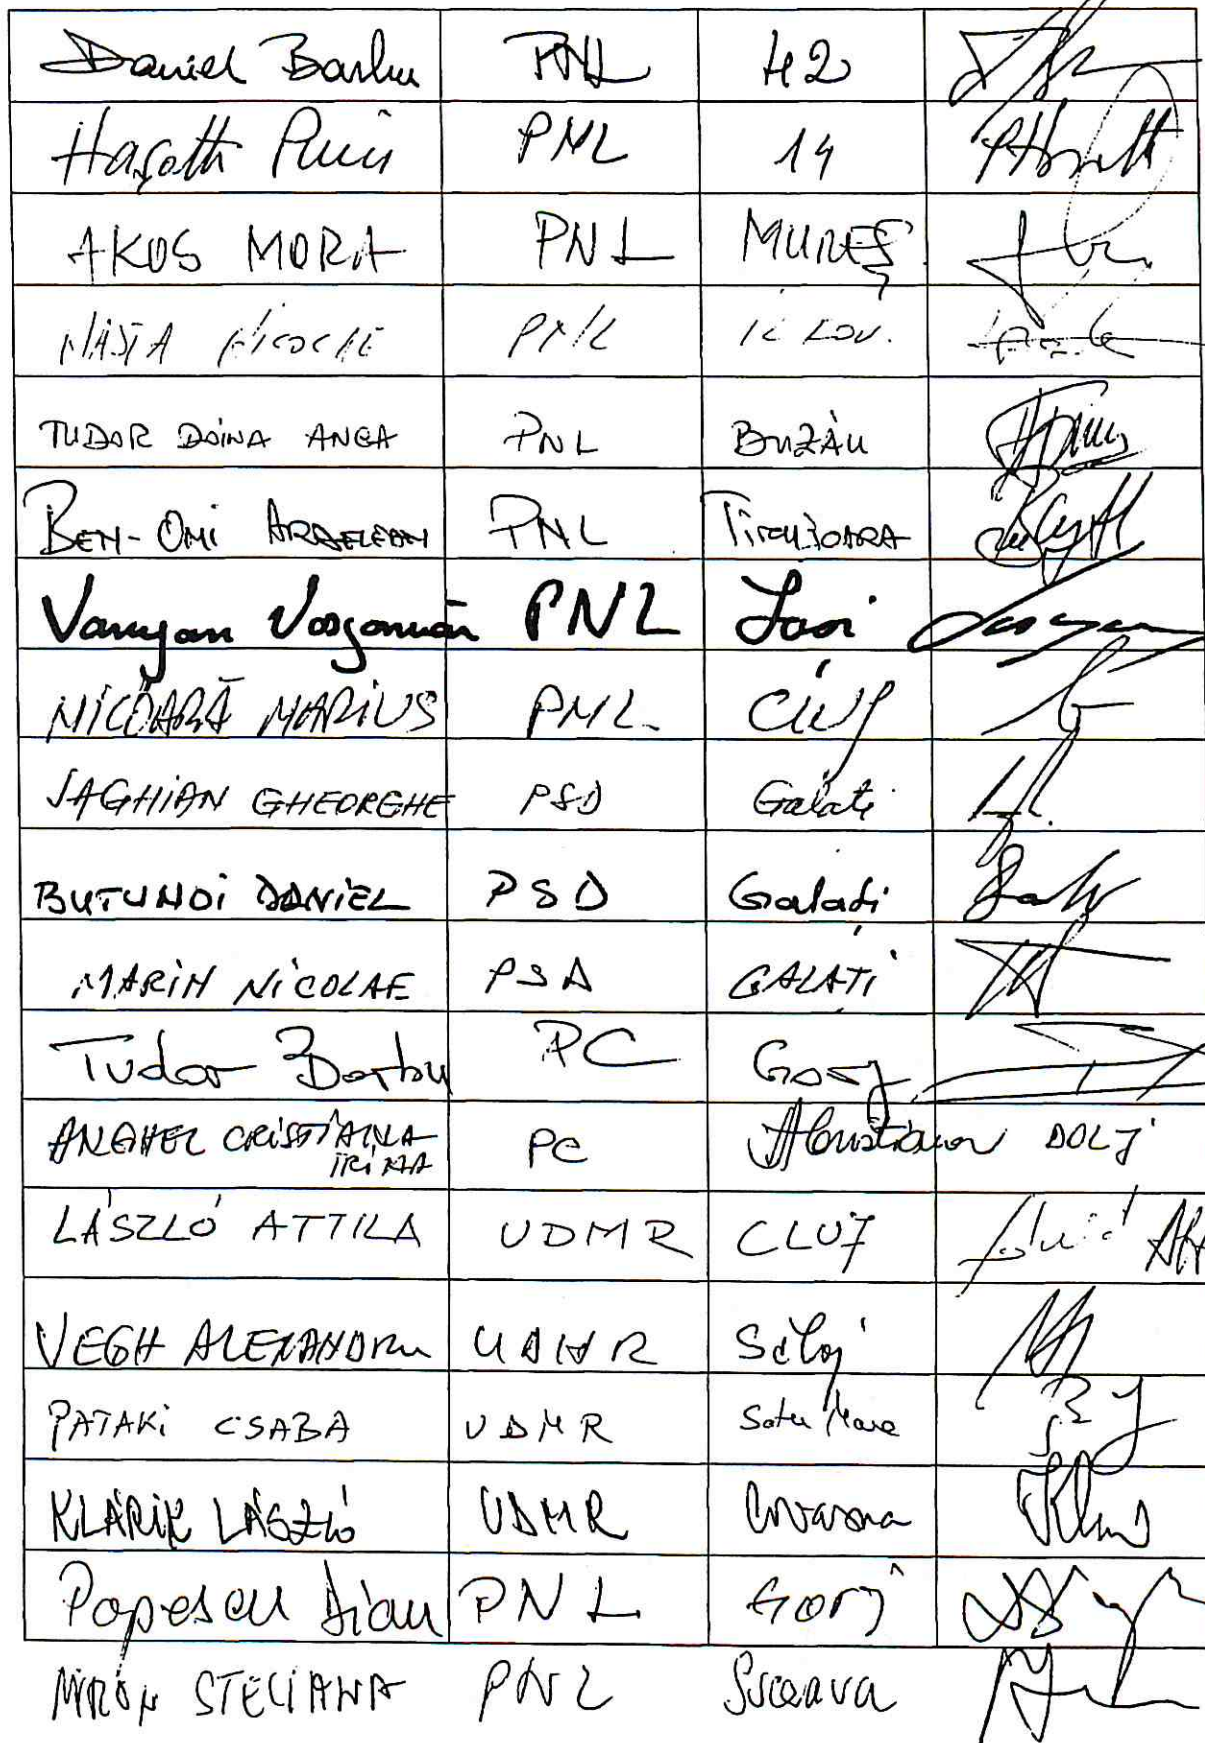 Daniel Barbu PNL 42
Haşotti Puiu PNL 14
AKOS MORA PNL MUREŞ
NAŞTA NICOLAE PNL ILFOV.
TUDOR DOINA ANCA PNL BUZĂU
BEN-ONI ARDELEAN PNL TIMIŞOARA
Varujan Vosganian PNL Iaşi
NICOARĂ MARIUS PNL CLUJ
SAGHIAN GHEORGHE PSD Galaţi
BUTUNOI DANIEL PSD Galaţi
MARIN NICOLAE PSD GALAŢI
Tudor Barbu PC Gorj
ANGHEL CRISTIANA PC DOLJ
IRINA
LÁSZLÓ ATTILA UDMR CLUJ
VEGH ALEXANDRU UDMR Sălaj
PATAKI CSABA UDMR Satu Mare
KLÁRIK LÁSZLÓ UDMR Covasna
Popescu Dian PNL Gorj
MIRON STELIANA PNL Suceava